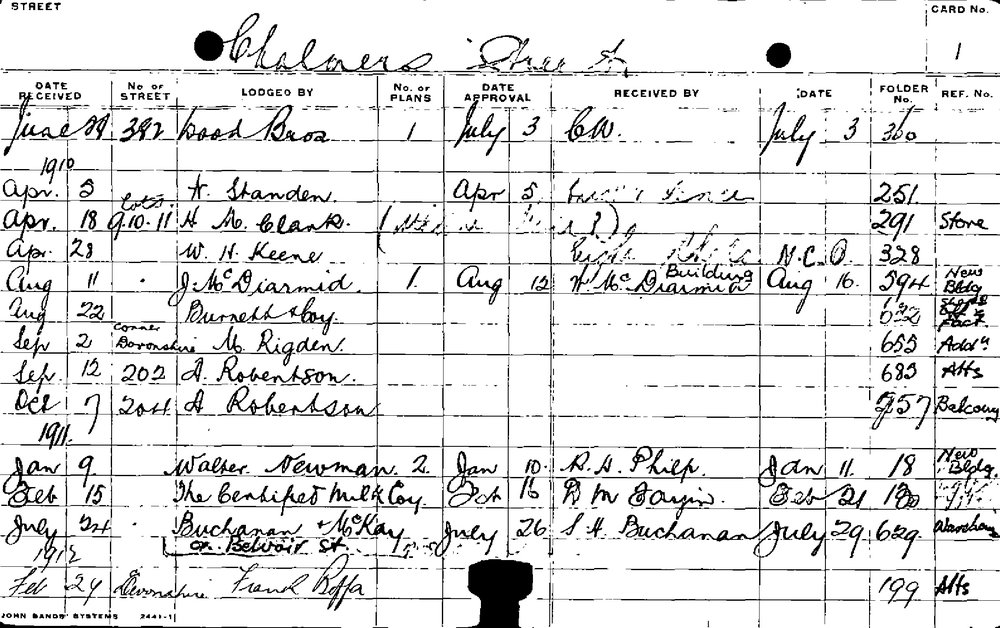 STREET
CARD No.
Chalmers Street
1
DATE RECEIVED No OF STREET LODGED BY No. OF PLANS DATE APPROVAL RECEIVED BY DATE FOLDER No. REF. No.
June 29 382 Wood Bros 1 July 3 C.W. July 3 360
1910
Apr. 5 H. Standen. Apr 5 251
Lots
Apr. 18 9.10.11 H M. Clark. 291 Store
Apr. 28 W. H. Keene Eight N.C.O. 328
Aug 11 J. McDiarmid. 1. Aug 12 H McDiarmid Building Aug 16. 594 New Bldg
Aug 22 Burnett & Coy. 632 Fact
Sep 2 corner Devonshire M. Rigden. 653 Addn
Sep. 12 202 A. Robertson. 683 Alts
Oct 7 204 A Robertson 757 Balcony
1911.
Jan 9. Walter Newman. 2. Jan 10. R. H. Philp. Jan 11. 18 New Bldg.
Feb 15 The Certified Milk Coy. Feb 16 D M Feb 21
July 24 Buchanan & McKay July 26 S H Buchanan July 29 629
cr. Belvoir St.
1912
Feb 24 Devonshire Frank Roffa 199 Alts
JOHN SANDS' SYSTEMS 2441-1